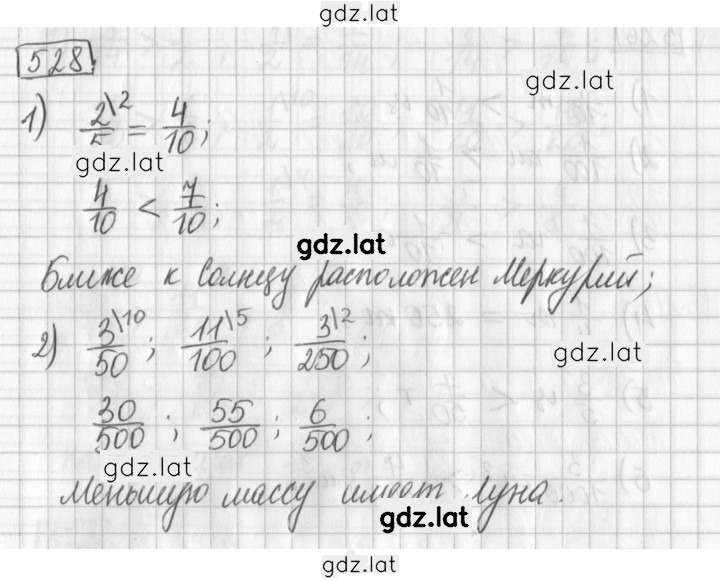 gdz.lat
528.
gdz.lat
1) 2\2/5 = 4/10;
gdz.lat
4/10 < 7/10;
gdz.lat
Ближе к Солнцу расположен Меркурий;
2) 3\10/50 ; 11\5/100 ; 3\2/250 ;
gdz.lat
30/500 ; 55/500 ; 6/500 ;
gdz.lat
Меньшую массу имеет Луна.
gdz.lat
gdz.lat